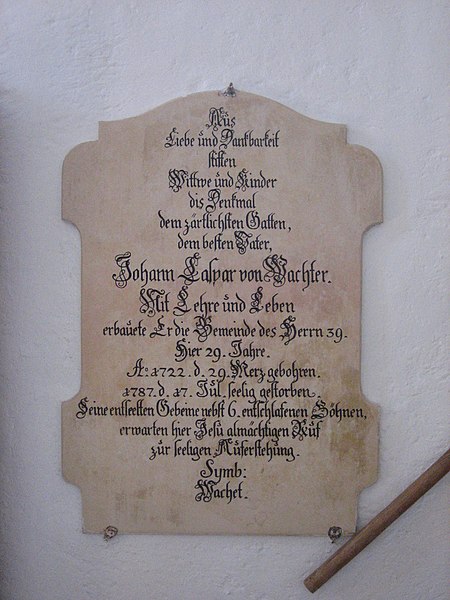 Aus
Liebe und Dankbarkeit
stiften
Wittwe und Kinder
dis Denkmal
dem zärtlichsten Gatten,
dem besten Vater,
Johann Caspar von Wachter.
Mit Lehre und Leben
erbauete Er die Gemeinde des Herrn 39.
Hier 29. Jahre.
A: 1722. d. 29. Merz gebohren.
1787. d. 17. Jul. seelig gestorben.
Seine entseelten Gebeine nebst 6. entschlafenen Söhnen,
erwarten hier Jesu almächtigen Ruf
zur seeligen Auferstehung.
Symb:
Wachet.